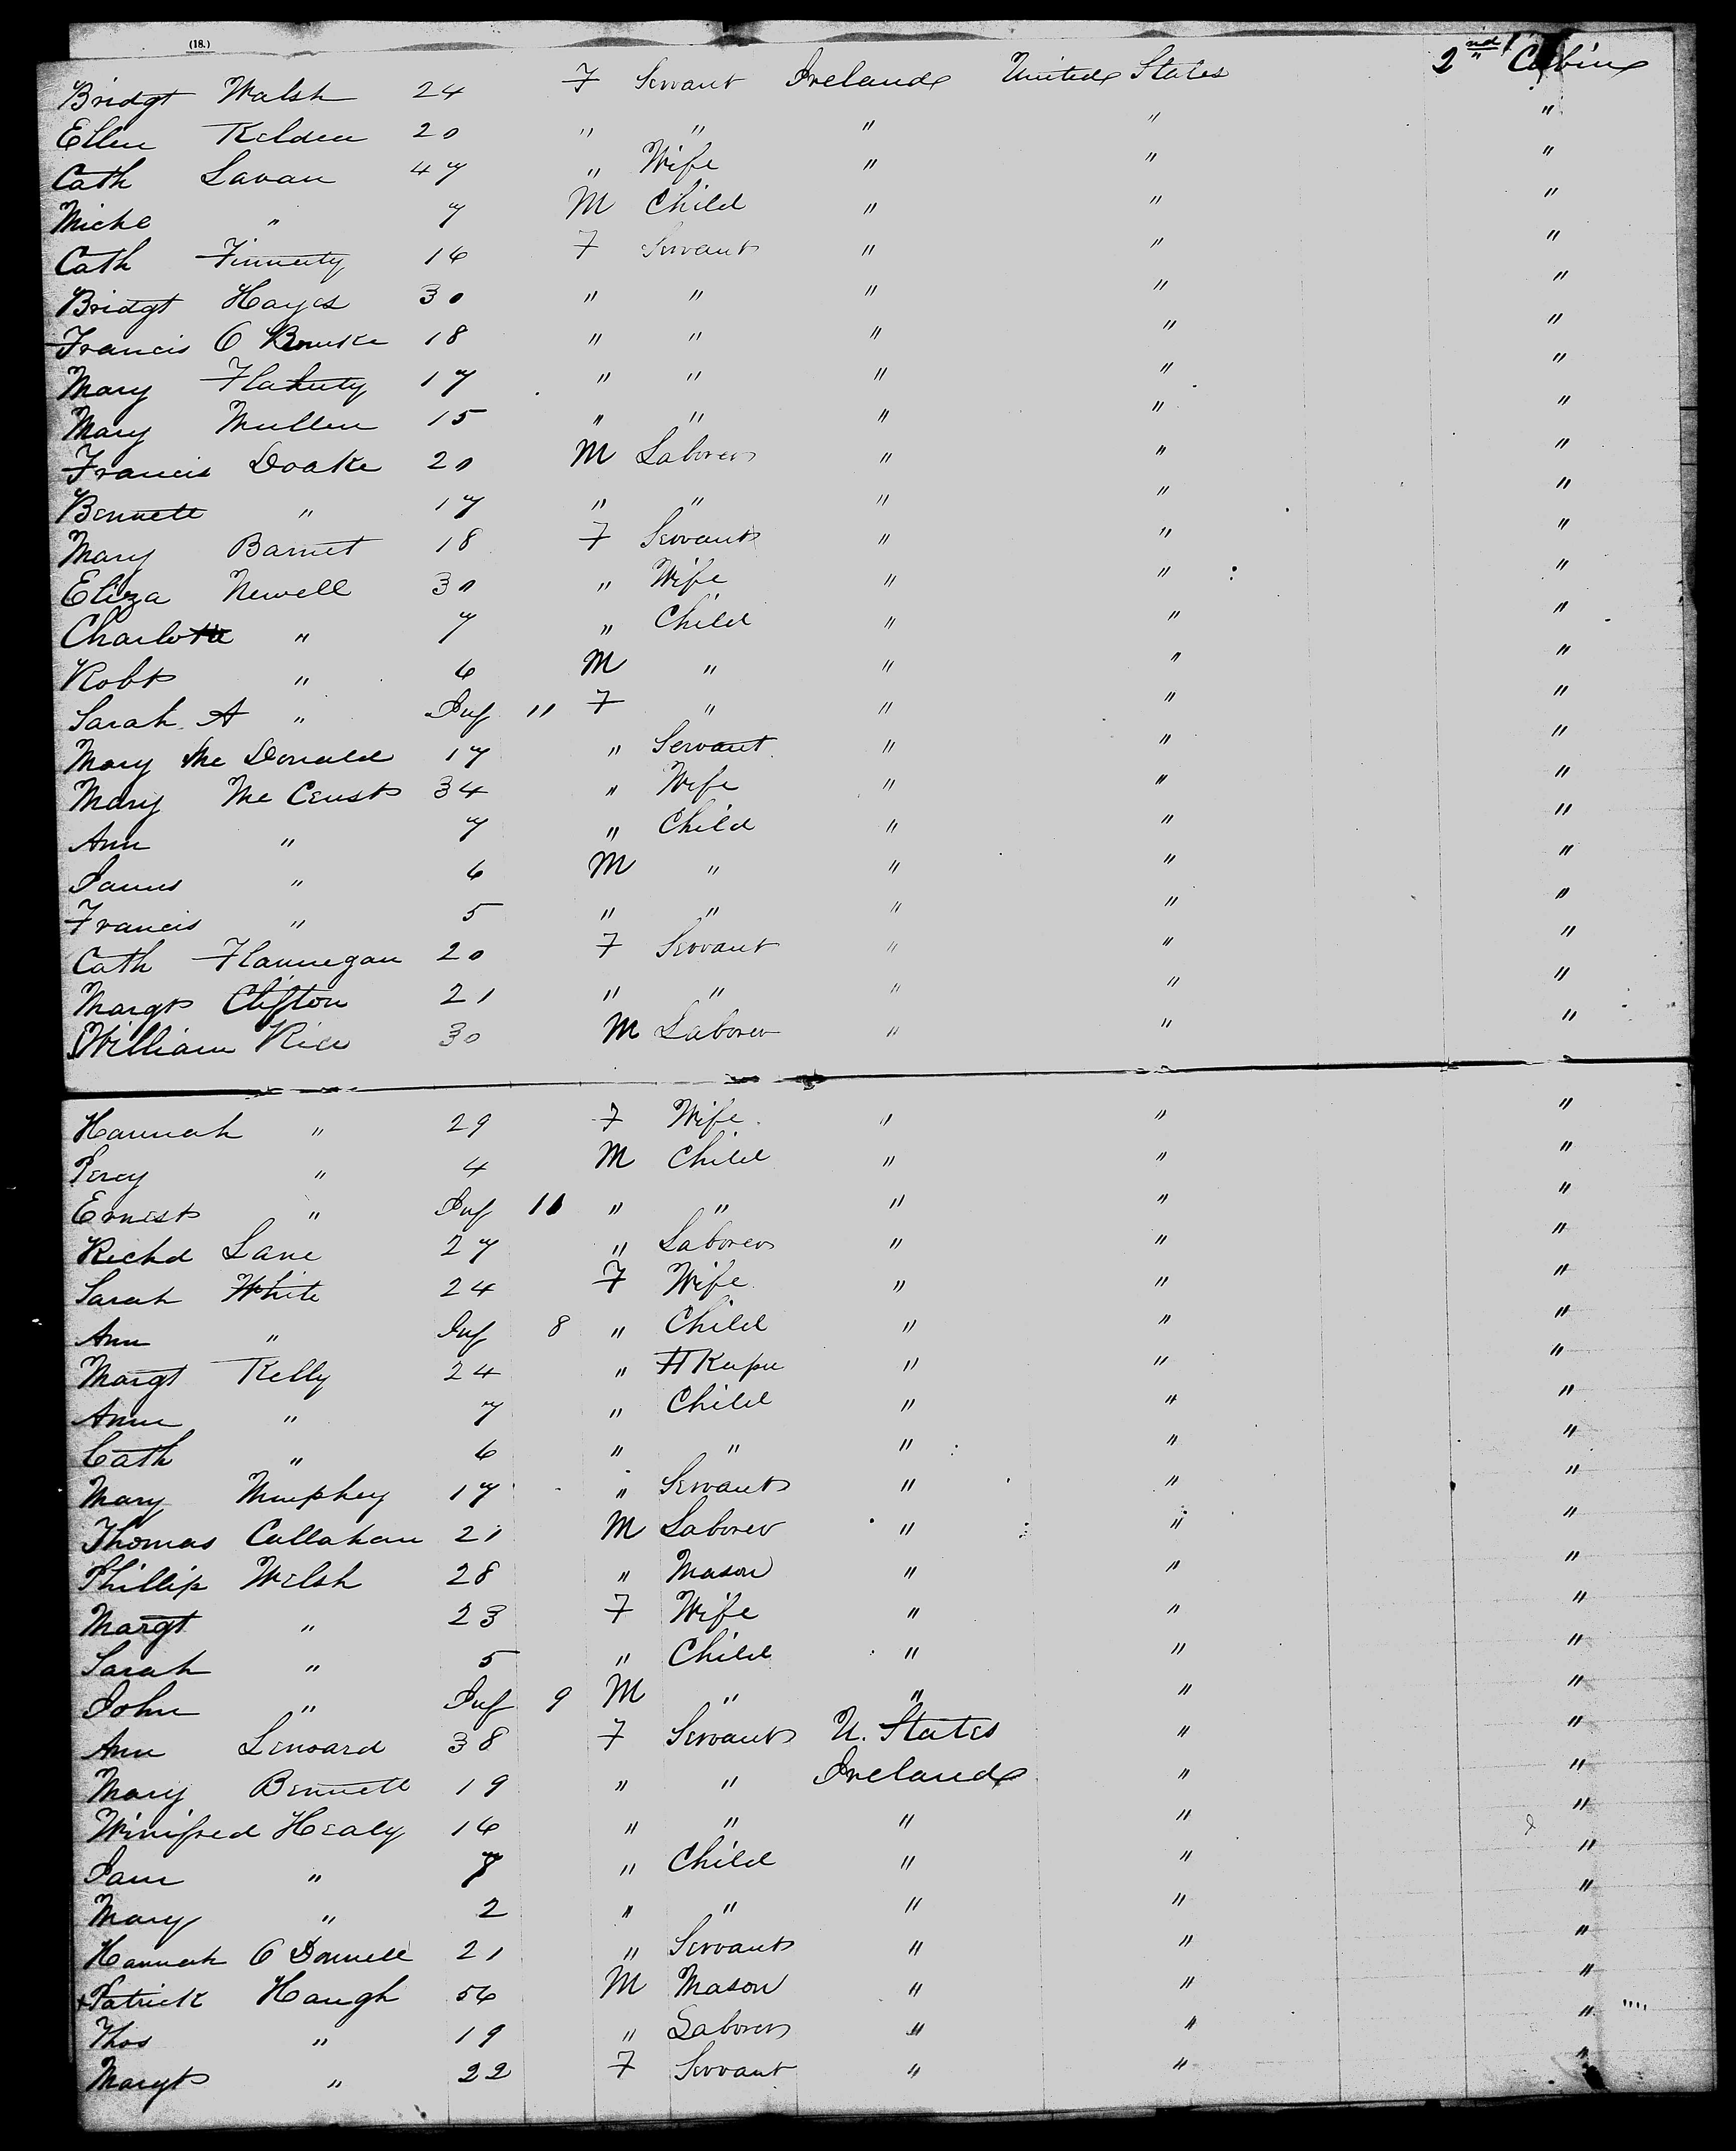 (18.)
Bridgt Walsh 24 F Servant Ireland United States 2nd Cabin
Ellen Kelden 20 " " " " "
Cath Lavan 47 " Wife " " "
Michl " 7 M Child " " "
Cath Finnerty 16 F Servant " " "
Bridgt Hayes 30 " " " " "
Francis O Rourke 18 " " " " "
Mary Flaherty 17 " " " " "
Mary Mullen 15 " " " " "
Francis Doake 20 M Laborer " " "
Bennett " 17 " " " " "
Mary Barnet 18 F Servant " " "
Eliza Newell 30 " Wife " " "
Charlotte " 7 " Child " " "
Robt " 6 M " " " "
Sarah A " Inf 11 F " " " "
Mary Mc Donald 17 " Servant " " "
Mary Mc 34 " Wife " " "
Ann " 7 " Child " " "
James " 6 M " " " "
Francis " 5 " " " " "
Cath Flannegan 20 F Servant " " "
Margt Clifton 21 " " " " "
William Rice 30 M Laborer " " "
Hannah " 29 F Wife " " "
Percy " 4 M Child " " "
Ernest " Inf 11 " " " " "
Richd Lane 27 " Laborer " " "
Sarah White 24 F Wife " " "
Ann " Inf 8 " Child " " "
Margt Kelly 24 " H Keeper " " "
Annie " 7 " Child " " "
Cath " 6 " " " " "
Mary Murphey 17 " Servant " " "
Thomas Callahan 21 M Laborer " " "
Phillip Welsh 28 " Mason " " "
Margt " 23 F Wife " " "
Sarah " 5 " Child " " "
John " Inf 9 M " " " "
Ann Lenoard 38 F Servant U. States " "
Mary Bennett 19 " " Ireland " "
Winifred Healy 16 " " " " "
Jane " 7 " Child " " "
Mary " 2 " " " " "
Hannah O Donnell 21 " Servant " " "
Patrick Haugh 56 M Mason " " "
Thos " 19 " Laborer " " "
Margt " 22 F Servant " " "